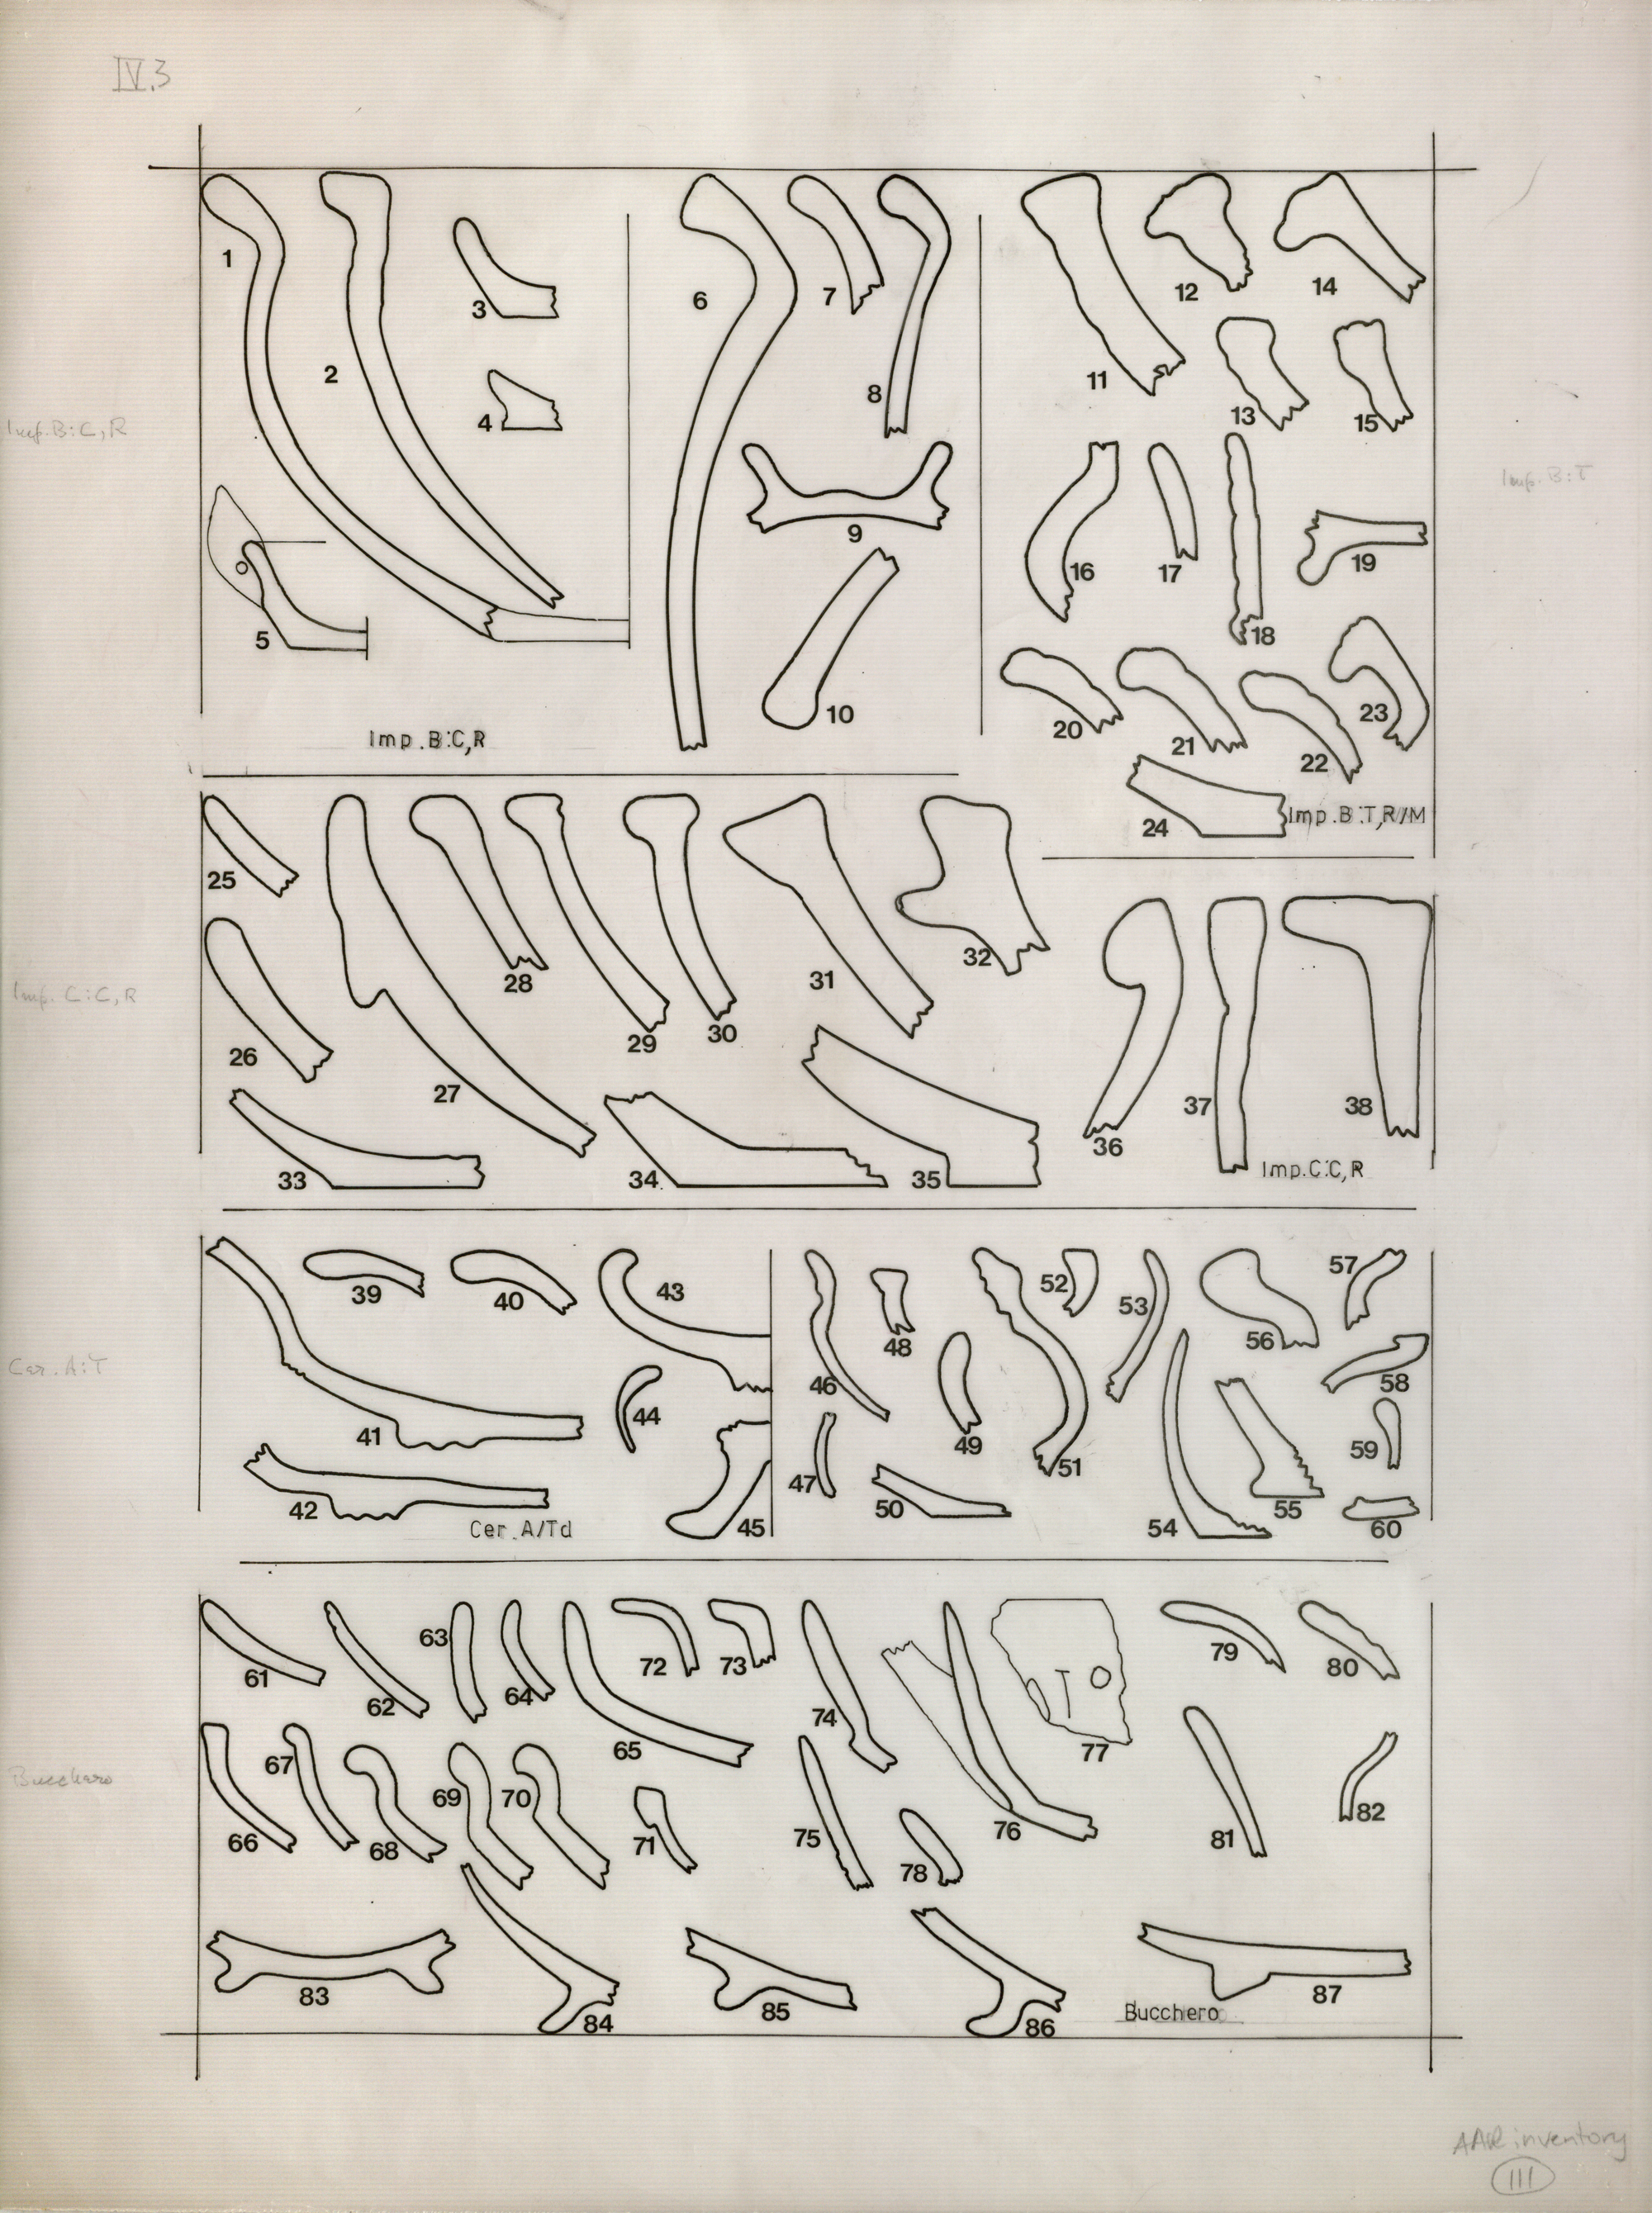 IV.3
1
2
3
4
5
Imp.B:C,R
6
7
8
9
10
11
12
14
13
15
16
17
18
19
20
21
22
23
24
Imp.B:T,R/M
Imp.B:C,R
Imp.B:T
25
26
27
28
29
30
31
32
33
34
35
36
37
38
Imp.C:C,R
Imp.C:C,R
39
40
41
42
43
44
45
Cer.A/Td
Cer.A:T
46
47
48
49
50
51
52
53
54
55
56
57
58
59
60
61
62
63
64
65
66
67
68
69
70
71
72
73
74
75
76
77
78
79
80
81
82
83
84
85
86
87
Bucchero
Bucchero
AAR inventory
III